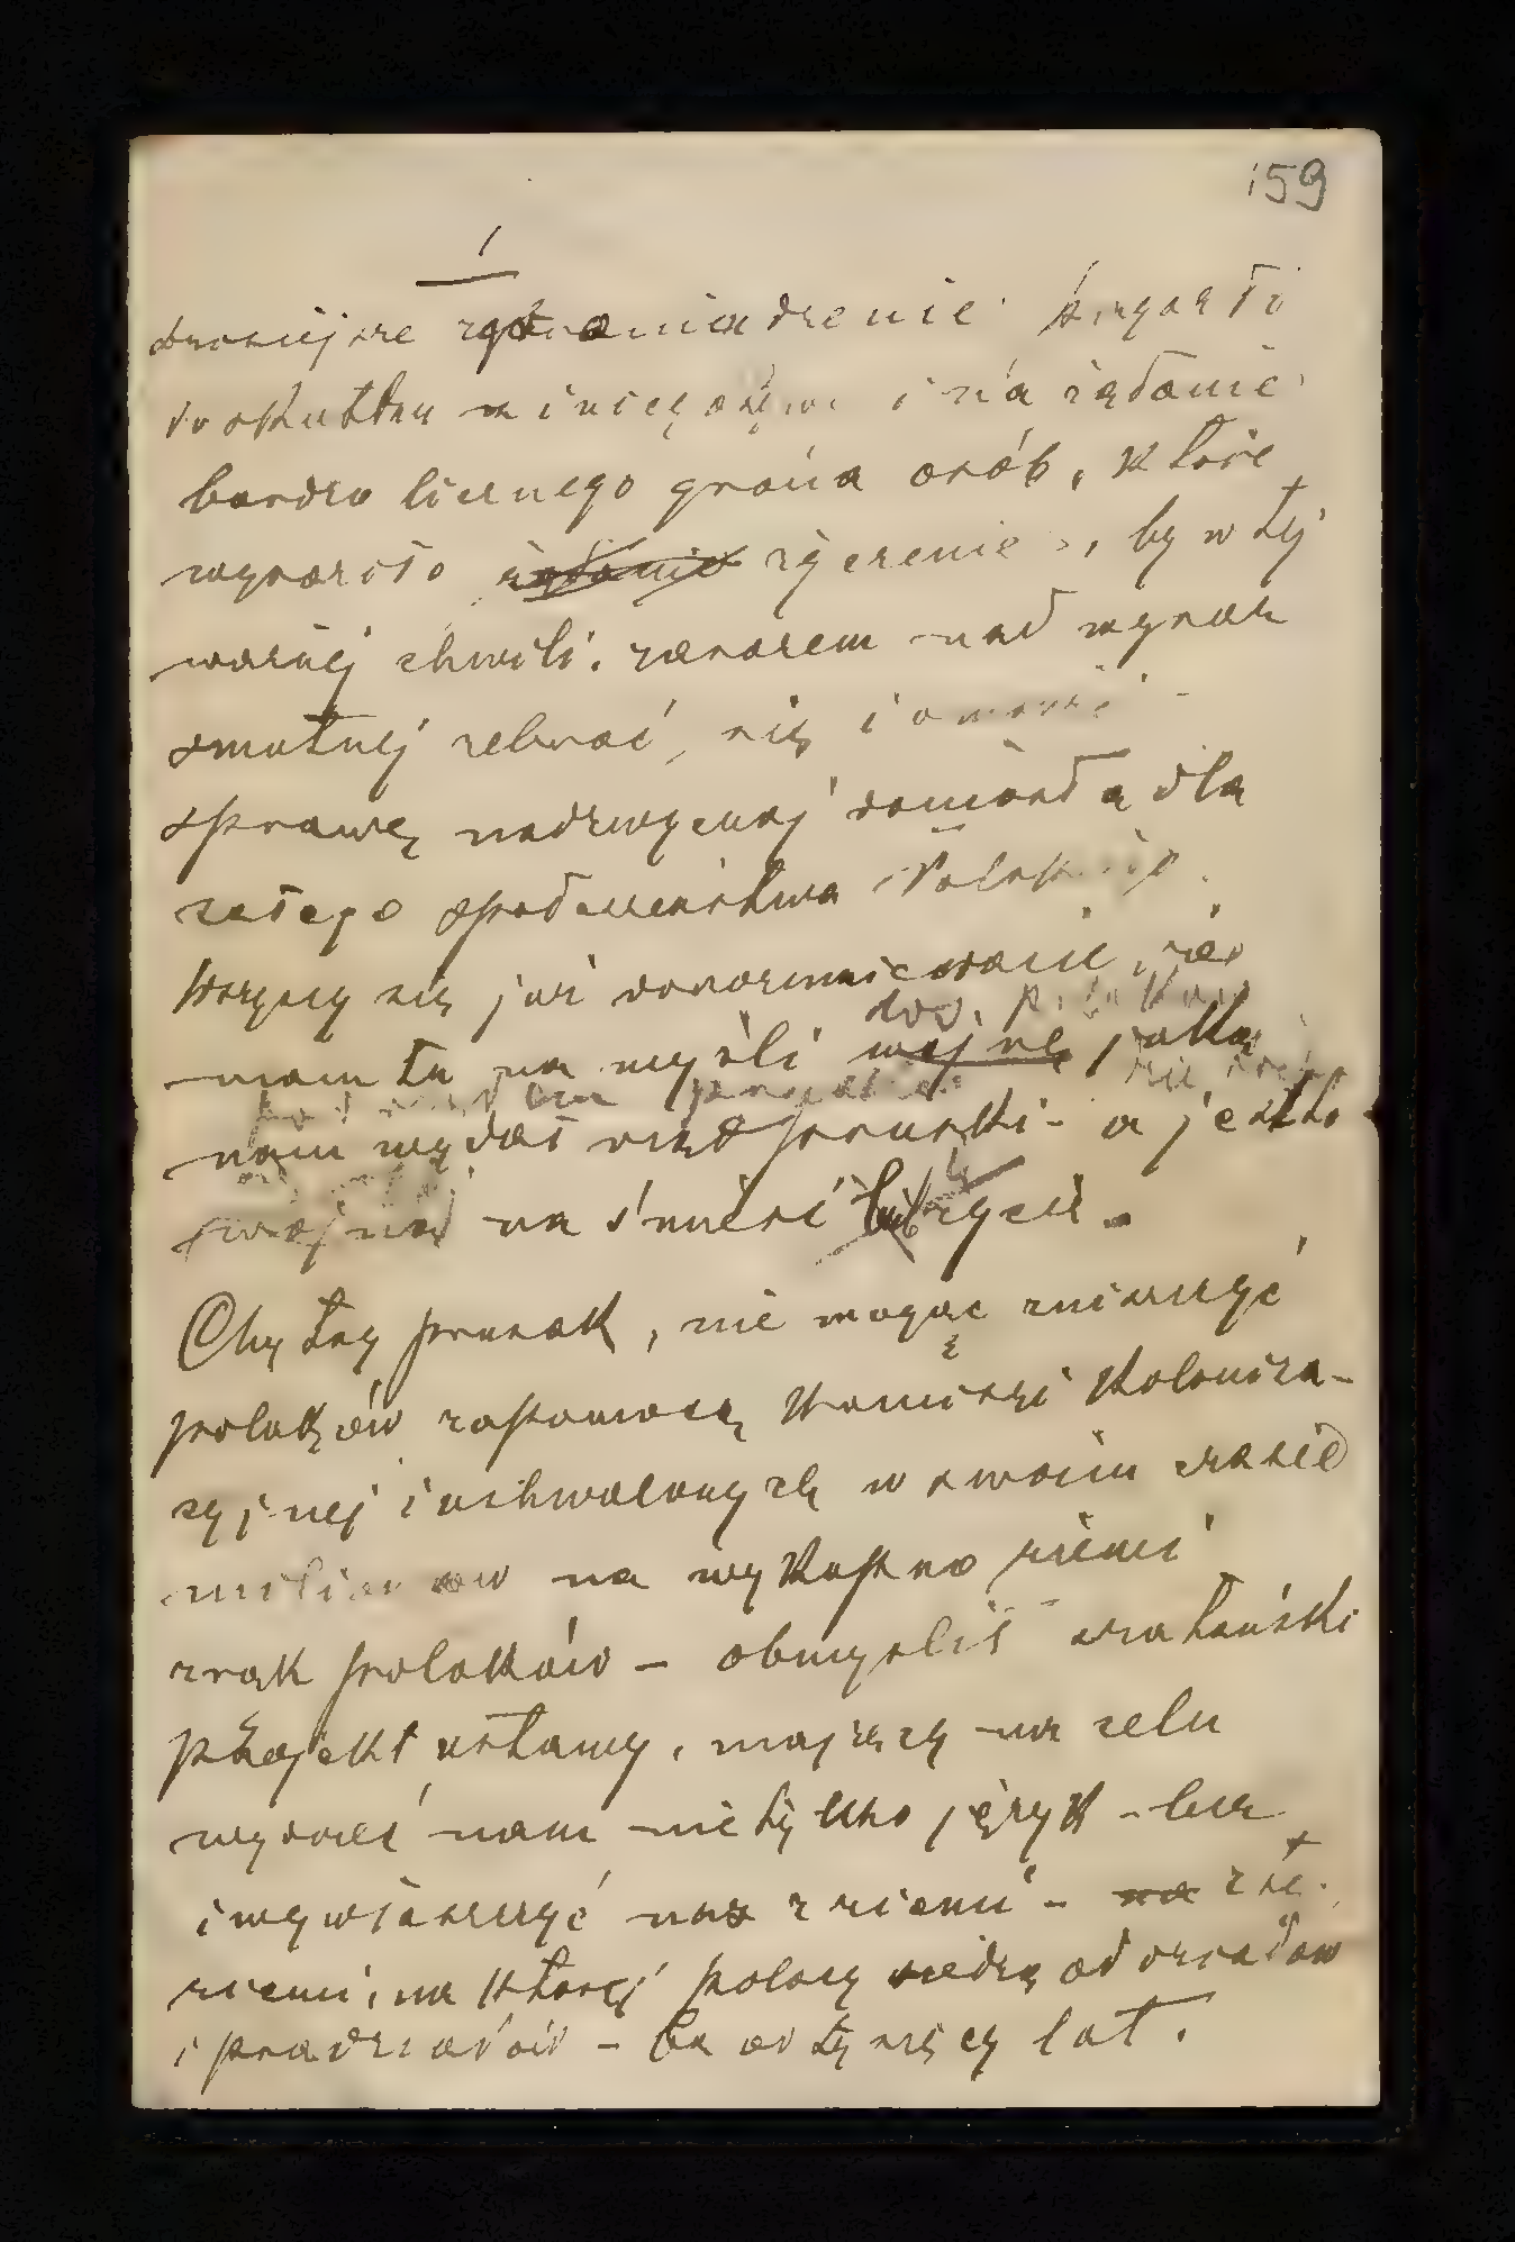 159
1
dzisiejsze zgromadzenie
do skutku i na żądanie
bardzo licznego grona osób, które
wyraziło żądanie życzenie, by w tej
ważnej chwili, zarazem nad wyraz
smutnej zebrać się i omówić
sprawę nadzwyczaj doniosłą dla
całego społeczeństwa Polskiego.
Wszyscy się już rozumie, że
mam tu na myśli wojnę jaką
nam wydał rząd pruski - a jest to
wojna na śmierć i życie.
Chytry prusak, nie mogąc zniszczyć
polaków zapomocą Komisyi Koloniza-
cyjnej i uchwalonych w swoim czasie
milionów na wykupno ziemi
z rąk polaków - obmyślił szatański
projekt ustawy, mający na celu
wydrzeć nam nietylko język - lecz
i wywłaszczyć nas z ziemi - na z tej
ziemi, na której polacy siedzą od dziadów
i pradziadów - ba od tysięcy lat.